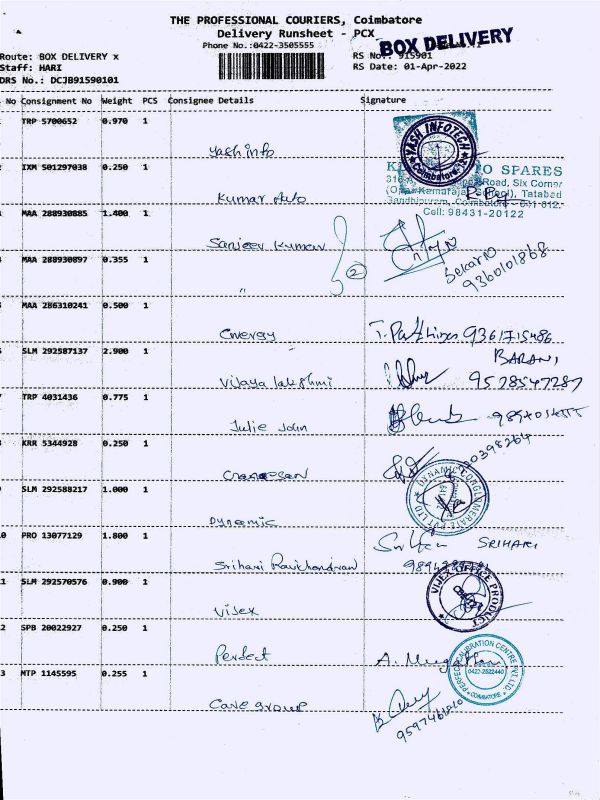 THE PROFESSIONAL COURIERS, Coimbatore
Delivery Runsheet - PCX
Phone No.:0422-3505555
BOX DELIVERY
Route: BOX DELIVERY x
RS No.: 915901
Staff: HARI
RS Date: 01-Apr-2022
DRS No.: DCJB91590101
No Consignment No Weight PCS Consignee Details Signature
TRP 5700652 0.970 1
Yash info
YASH INFOTECH
Coimbatore-12
2 IXM 501297038 0.250 1
Kumar Auto
O SPARES
Road, Six Corner
Tatabad
Gandhipuram, Coimbatore - 641 012.
Cell: 98431-20122
MAA 288930885 1.400 1
Sanjeev Kumar
2
MAA 288930897 0.355 1
"
Sekar N
9360101868
MAA 286310241 0.500 1
Energy
9361715486
SLM 292587137 2.900 1
Vijaya lakshmi
BARANI
9528547287
TRP 4031436 0.775 1
Julie John
KRR 5344928 0.250 1
SLM 292588217 1.000 1
Dynamic
DYNAMIC CONGLOMERATE PVT LTD
0 PRO 13077129 1.800 1
Srihari Ravichandran
SRIHARI
1 SLM 292570576 0.900 1
Vijex
VIJEX OFFICE PRODUCT
2 SPB 20022927 0.250 1
Perfect
PERFECT CALIBRATION CENTRE PVT. LTD.
0422-2522440
COIMBATORE
3 MTP 1145595 0.255 1
Care group